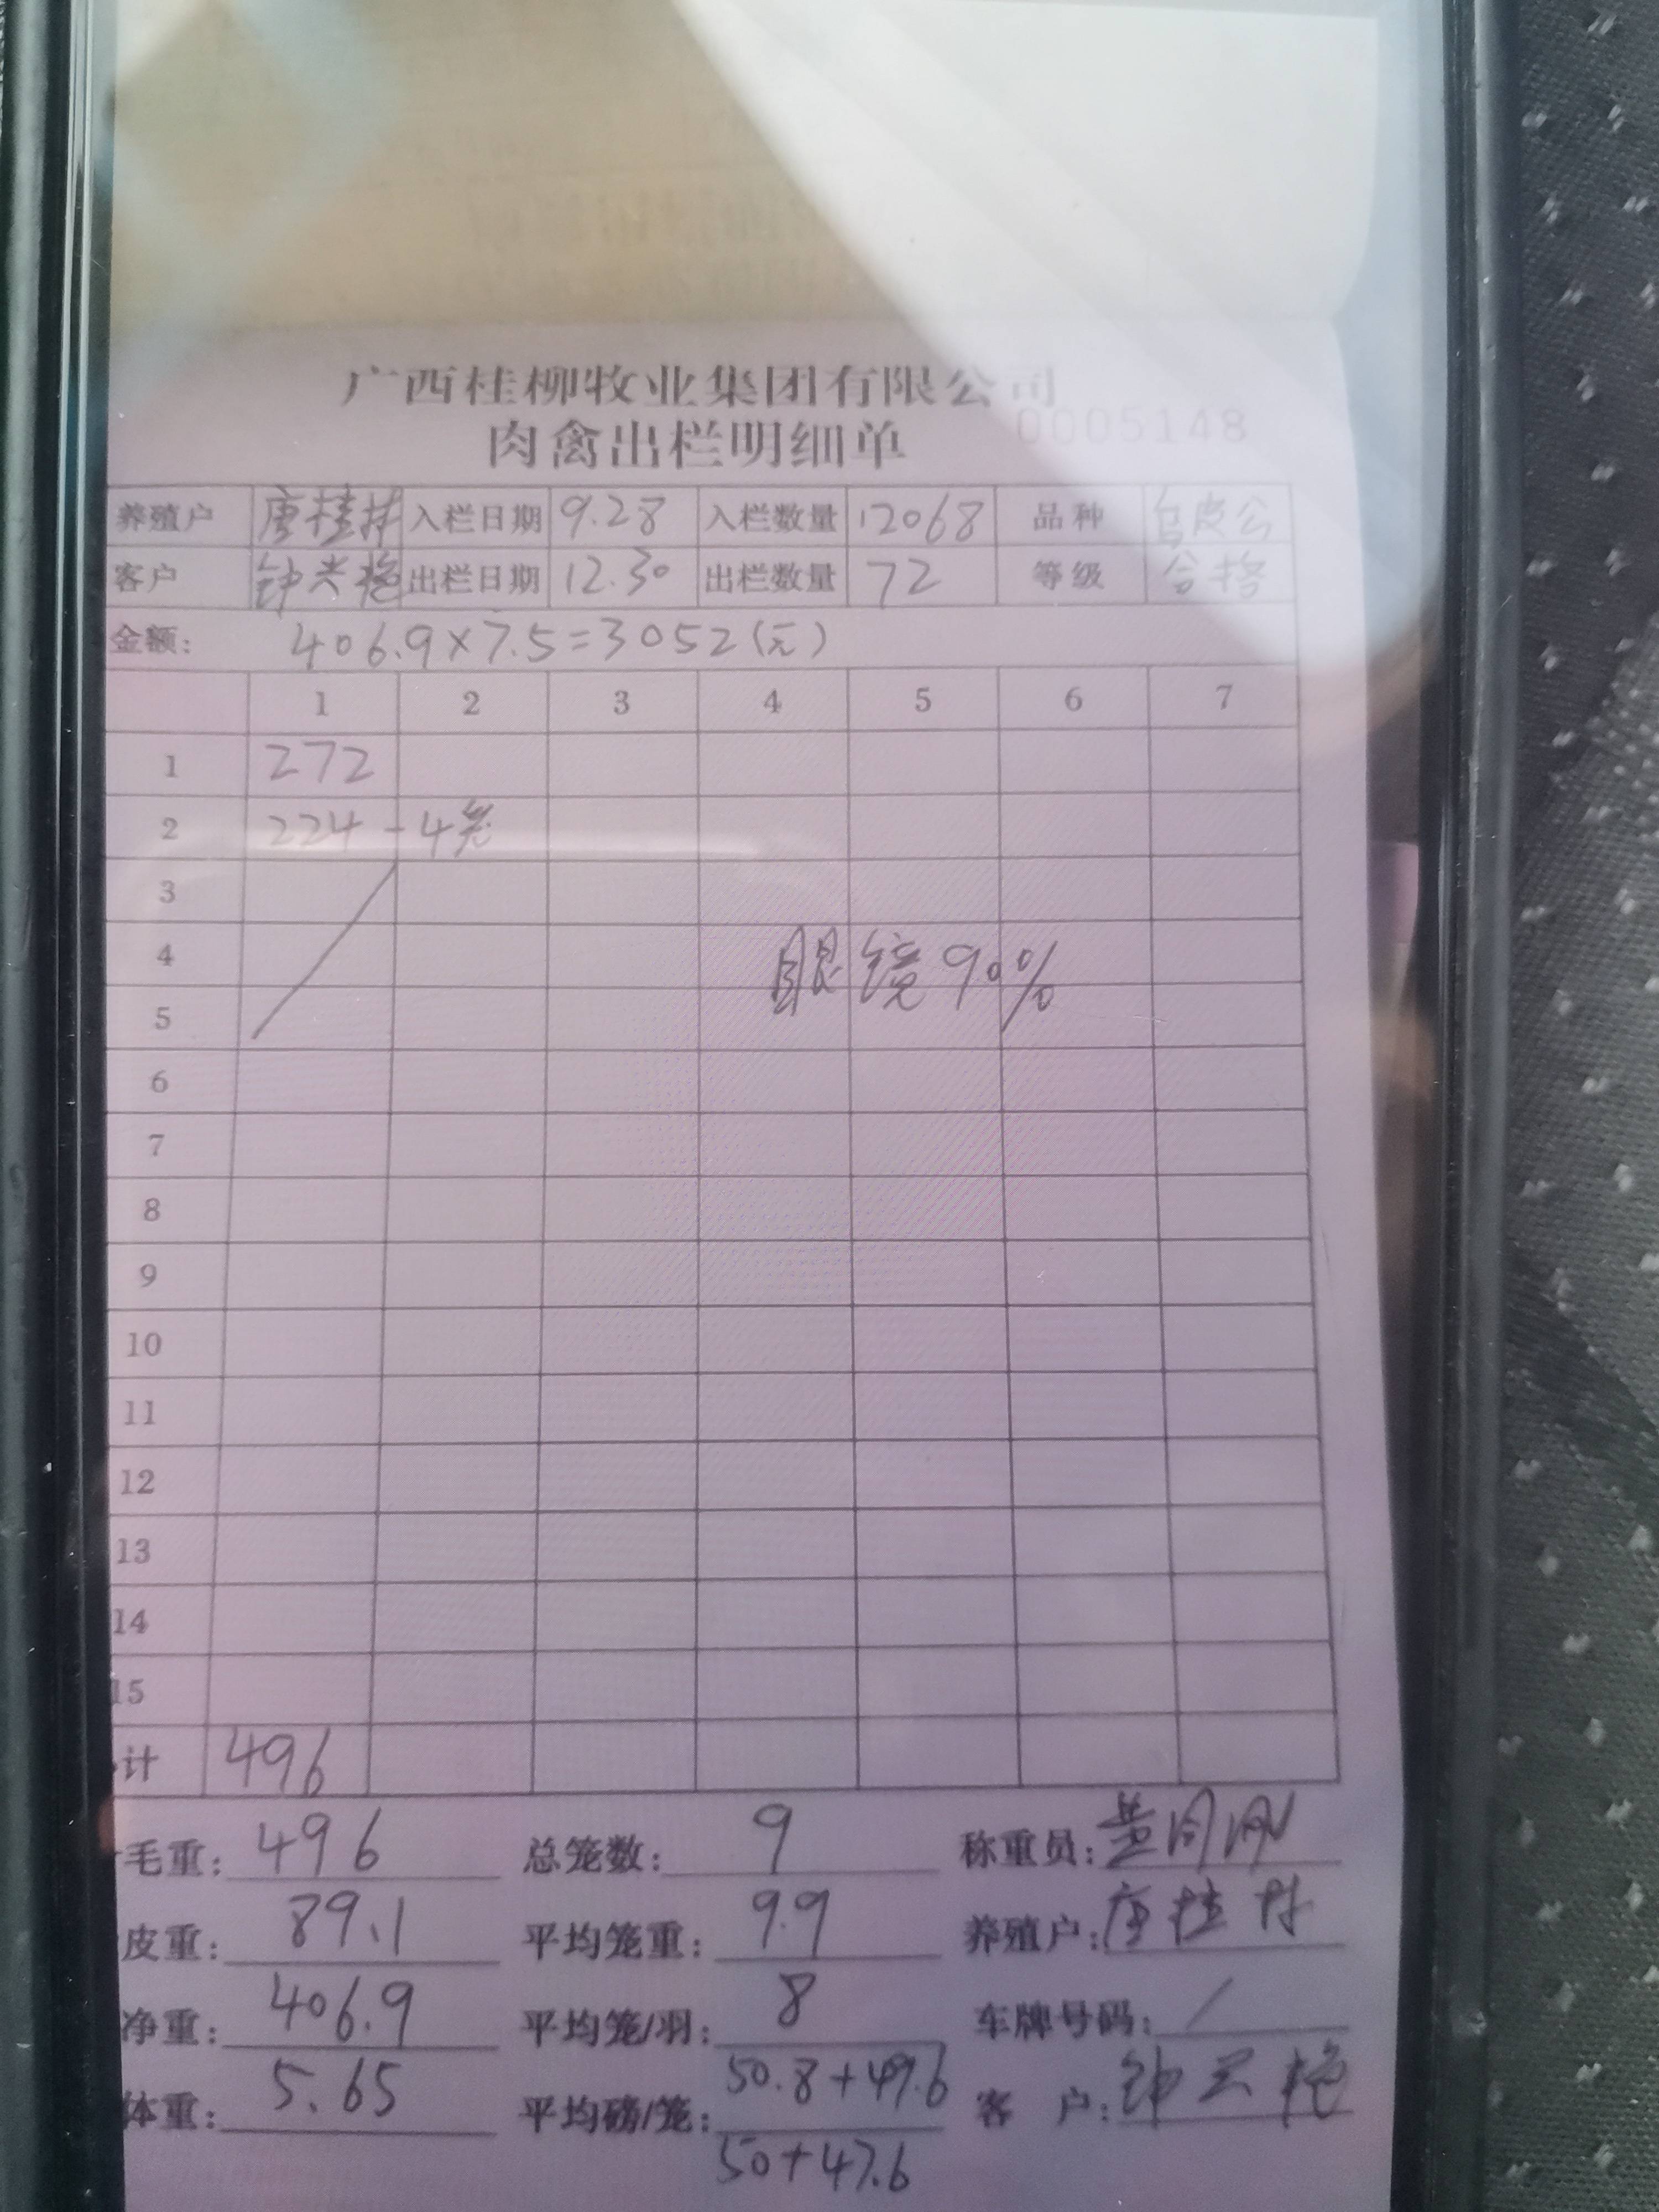 广西桂柳牧业集团有限公司
肉禽出栏明细单 0005148
养殖户 唐桂林 入栏日期 9.28 入栏数量 12068 品种 乌皮公
客户 钟兴艳 出栏日期 12.30 出栏数量 72 等级 合格
金额: 406.9×7.5=3052(元)
1 2 3 4 5 6 7
1 272
2 224 - 4笼
3
4 眼镜90%
5
6
7
8
9
10
11
12
13
14
15
计 496
毛重: 496 总笼数: 9 称重员:
皮重: 89.1 平均笼重: 9.9 养殖户: 唐桂林
净重: 406.9 平均笼/羽: 8 车牌号码: /
体重: 5.65 平均磅/笼: 50.8+49.6 客 户: 钟兴艳
50+47.6